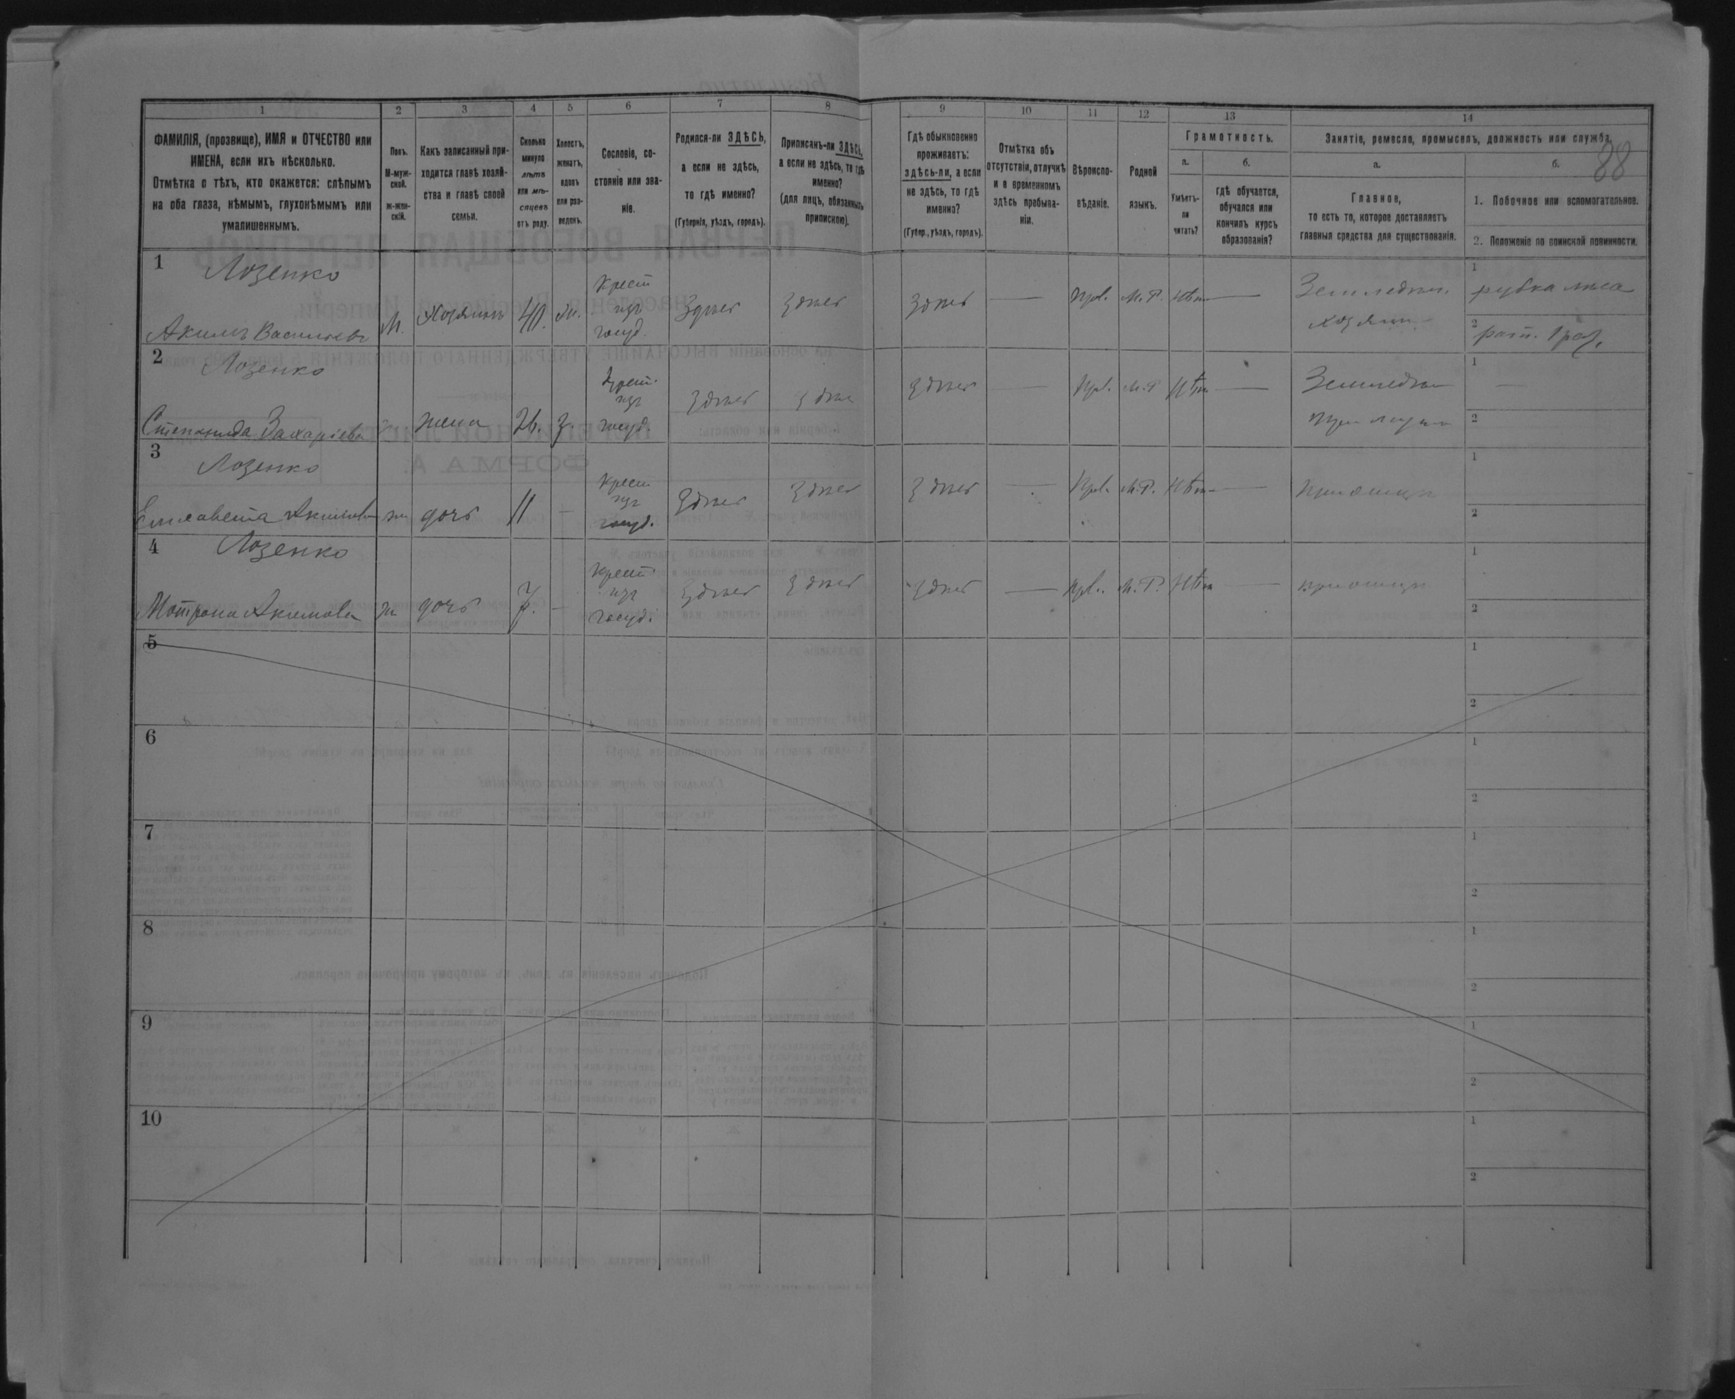 88
1 2 3 4 5 6 7 8 9 10 11 12 13 14
ФАМИЛІЯ, (прозвище), ИМЯ и ОТЧЕСТВО или
ИМЕНА, если ихъ нѣсколько.
Отмѣтка о тѣхъ, кто окажется: слѣпымъ
на оба глаза, нѣмымъ, глухонѣмымъ или
умалишеннымъ.
Полъ.
М-муж-
ской.
ж-жен-
скій.
Какъ записанный при-
ходится главѣ хозяй-
ства и главѣ своей
семьи.
Сколько
минуло
лѣтъ
или мѣ-
сяцевъ
отъ роду.
Холостъ,
женатъ,
вдовъ
или раз-
веденъ.
Сословіе, со-
стояніе или зва-
ніе.
Родился-ли ЗДѢСЬ,
а если не здѣсь,
то гдѣ именно?
(Губернія, уѣздъ, городъ).
Приписанъ-ли ЗДѢСЬ,
а если не здѣсь, то гдѣ
именно?
(для лицъ, обязанныхъ
припискою).
Гдѣ обыкновенно
проживаетъ:
здѣсь-ли, а если
не здѣсь, то гдѣ
именно?
(Губер., уѣздъ, городъ).
Отмѣтка объ
отсутствіи, отлучкѣ
и о временномъ
здѣсь пребыва-
ніи.
Вѣроиспо-
вѣданіе.
Родной
языкъ.
Грамотность.
а.
Умѣетъ-
ли
читать?
б.
гдѣ обучается,
обучался или
кончилъ курсъ
образованія?
Занятіе, ремесло, промыселъ, должность или служба.
а.
Главное,
то есть то, которое доставляетъ
главныя средства для существованія.
б.
1. Побочное или вспомогательное.
2. Положеніе по воинской повинности.
1 Лозенко
Акимъ Васильевъ М. Хозяинъ 40. ж. Крест изъ госуд. Здѣсь Здѣсь Здѣсь — Прв. М.Р. нѣтъ — Земледѣл. хозяинъ
1 рубка лѣса
2
2 Лозенко
Степанида Захаріева жена з. Крест. изъ госуд. Здѣсь Здѣсь Здѣсь — Прв. М.Р. нѣтъ — Земледѣл
1 —
2
3 Лозенко
Елисавета Акимова ж дочь 11 — Крест изъ госуд. Здѣсь Здѣсь Здѣсь — Прв. М.Р. нѣтъ —
1
2
4 Лозенко
Мотрона Акимова ж дочь 7. — Крест изъ госуд. Здѣсь Здѣсь Здѣсь — Прв. М.Р. нѣтъ —
1
2
5
1
2
6
1
2
7
1
2
8
1
2
9
1
2
10
1
2